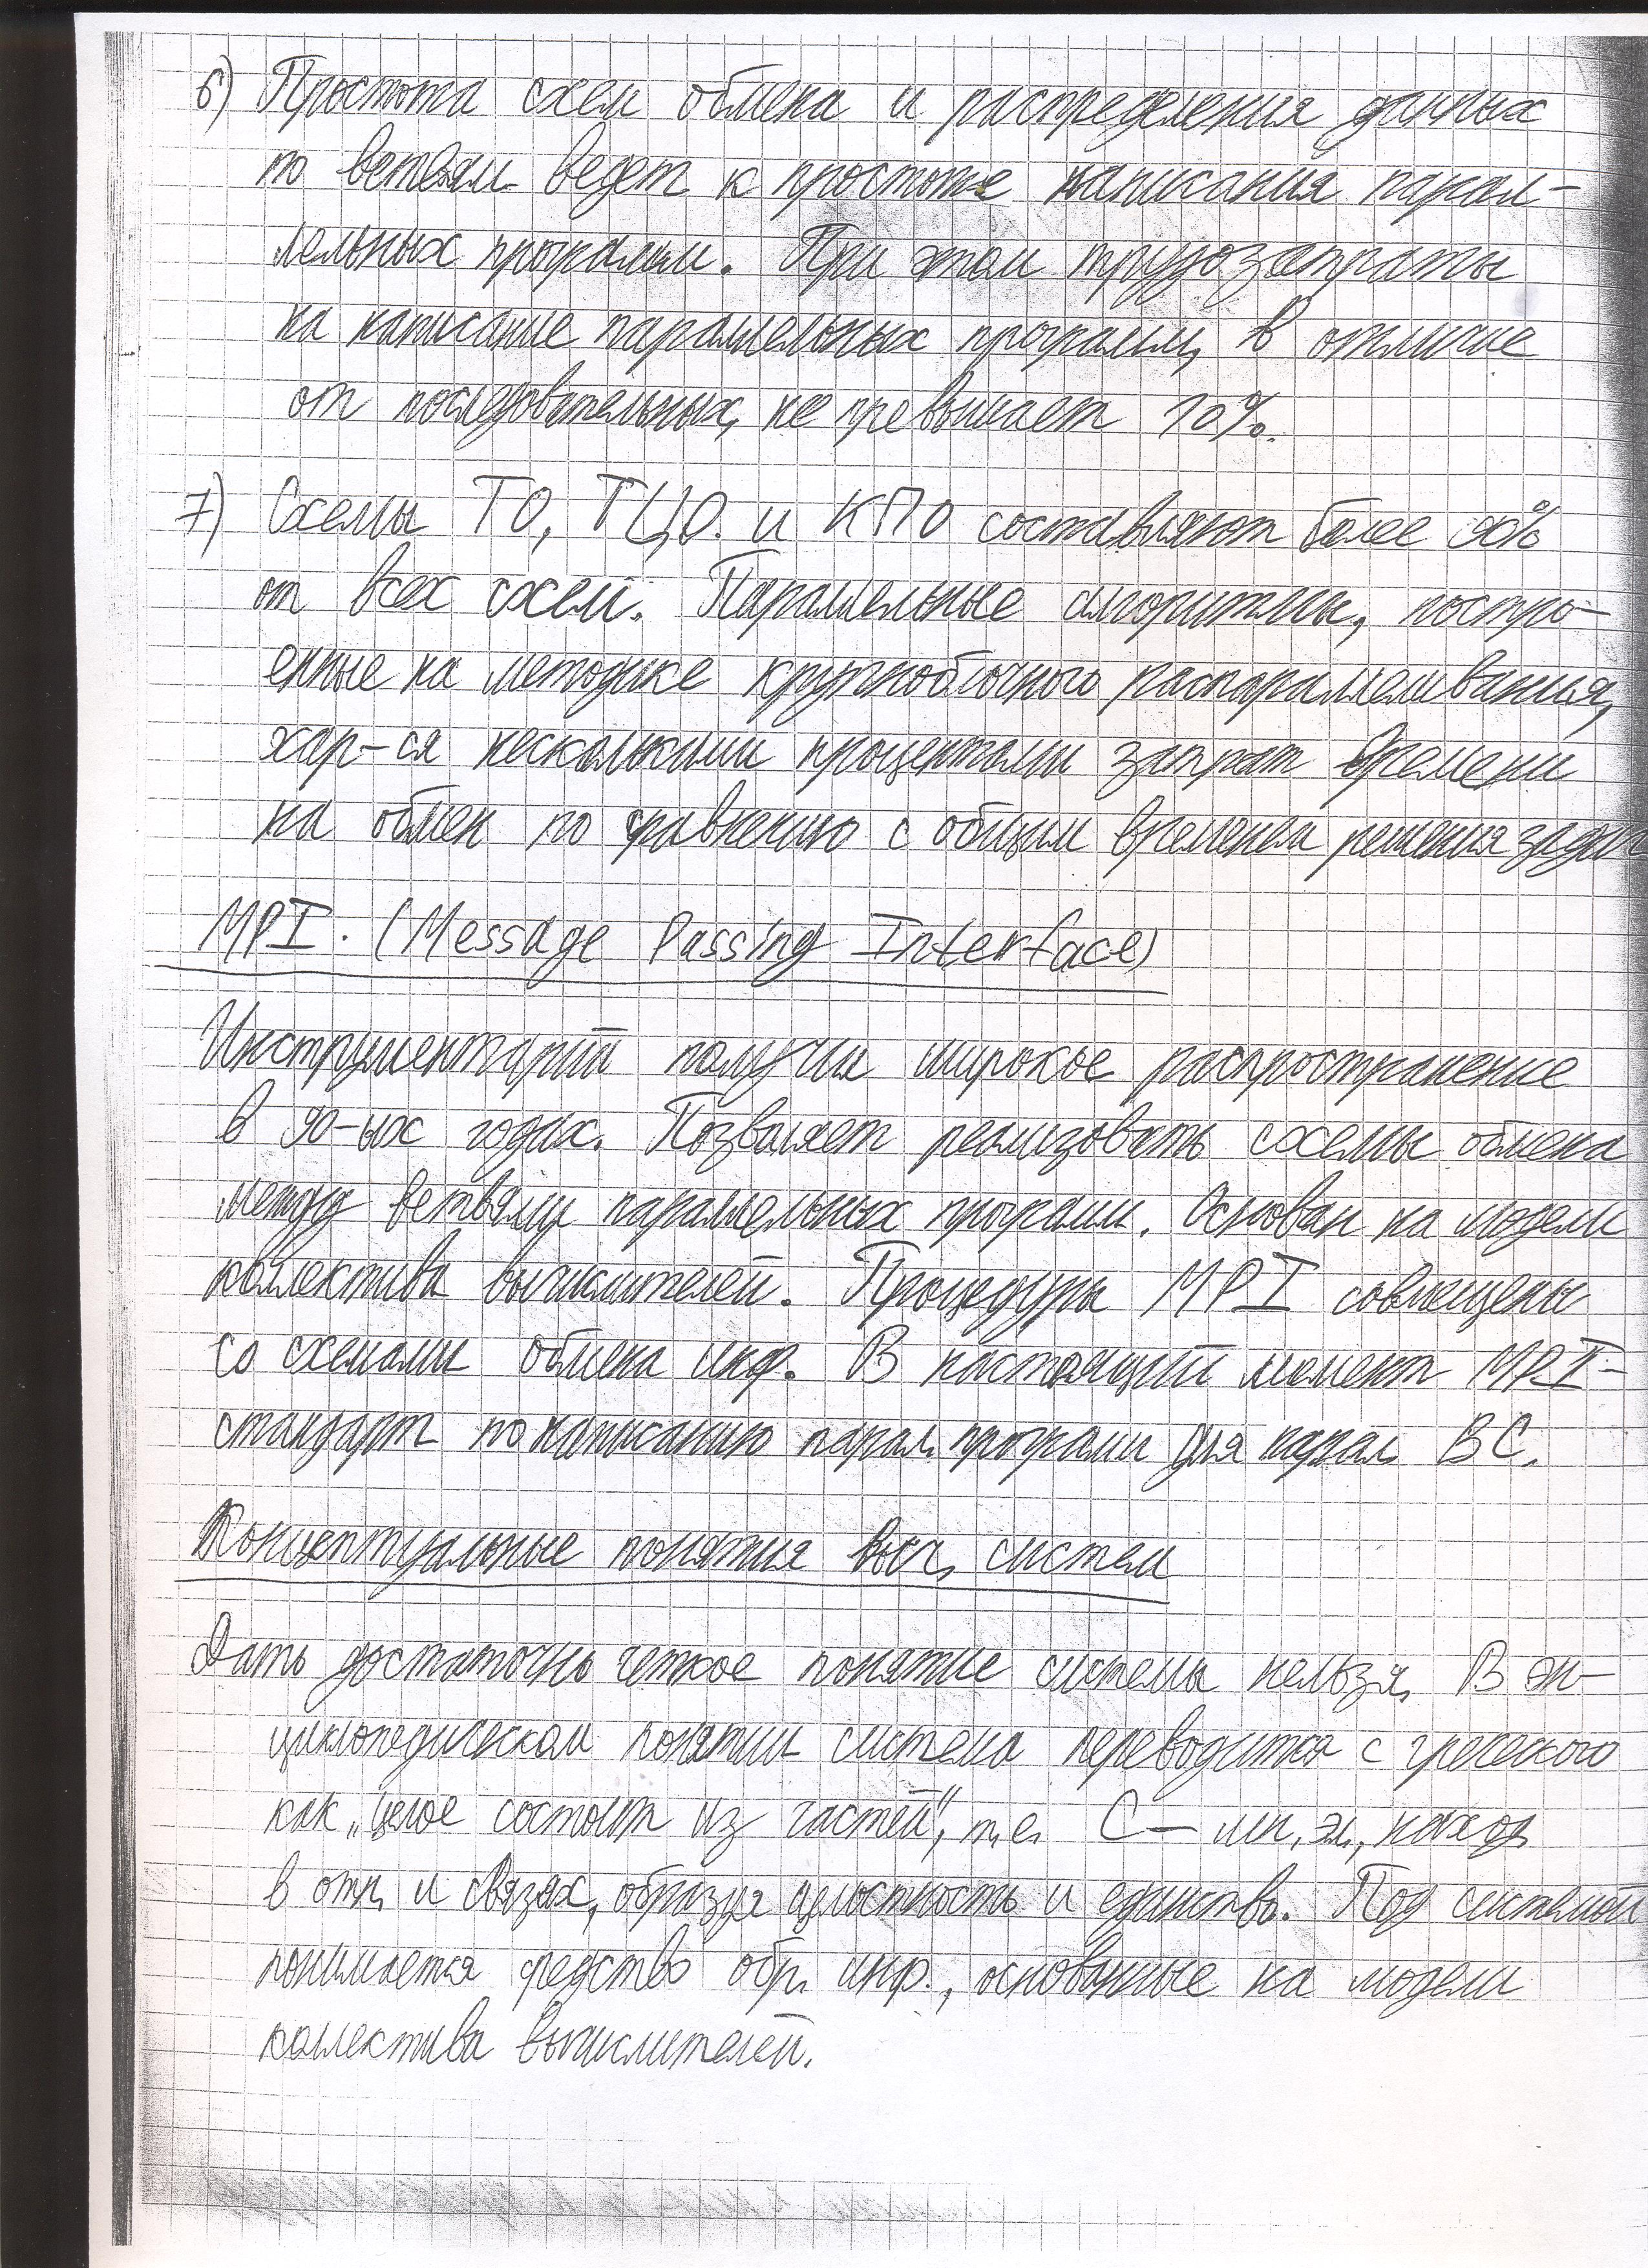 6) Простота схем обмена и распределения данных
по ветвям ведет к простоте написания парал-
лельных программ. При этом трудозатраты
на написание параллельных программ, в отличие
от последовательных, не превышает 10%.
7) Схемы ТО, ТЦО и КПО составляют более 90%
от всех схем. Параллельные алгоритмы, постро-
енные на методике крупноблочного распараллеливания,
хар-ся несколькими процентами затрат времени
на обмен по сравнению с общим временем решения задач
MPI. (Message Passing Interface)
Инструментарий получил широкое распространение
в 90-ых годах. Позволяет реализовать схемы обмена
между ветвями параллельных программ. Основан на модели
коллектива вычислителей. Процедуры MPI совмещены
со схемами обмена инф. В настоящий момент MPI-
стандарт по написанию парал. программ для парал. ВС.
Концептуальные понятия выч. систем
Дать достаточно четкое понятие системы нельзя. В эн-
циклопедическом понятии система переводится с греческого
как „целое состоит из частей", т.е. С — мн. эл., наход
в отн. и связях, образуя целостность и единство. Под системой
понимается средство обр. инф., основанные на модели
коллектива вычислителей.